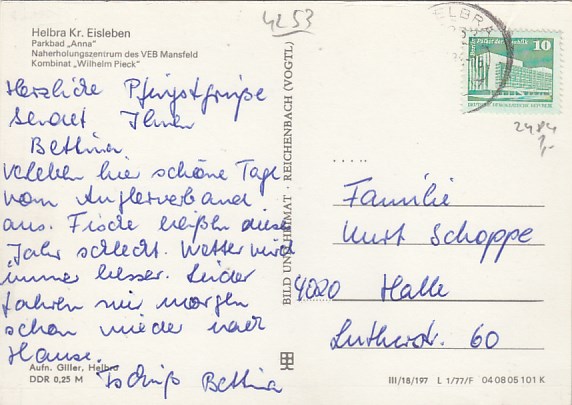 4253
Helbra Kr. Eisleben
Parkbad „Anna"
Naherholungszentrum des VEB Mansfeld
Kombinat „Wilhelm Pieck"
Herzliche Pfingstgrüße
sendet Ihnen
Bettina
verleben hier schöne Tage
vom Anglerverband
aus. Fische beißen dieses
Jahr schlecht. Wetter wird
immer besser. Leider
fahren wir morgen
schon wieder nach
Hause.
Tschüß Bettina
Aufn. Giller, Helbra
DDR 0,25 M
BILD UND HEIMAT · REICHENBACH (VOGTL)
HELBRA
10
DEUTSCHE DEMOKRATISCHE REPUBLIK
2484
1,-
Familie
Kurt Schoppe
4020 Halle
Lutherstr. 60
III/18/197 L 1/77/F 04 08 05 101 K